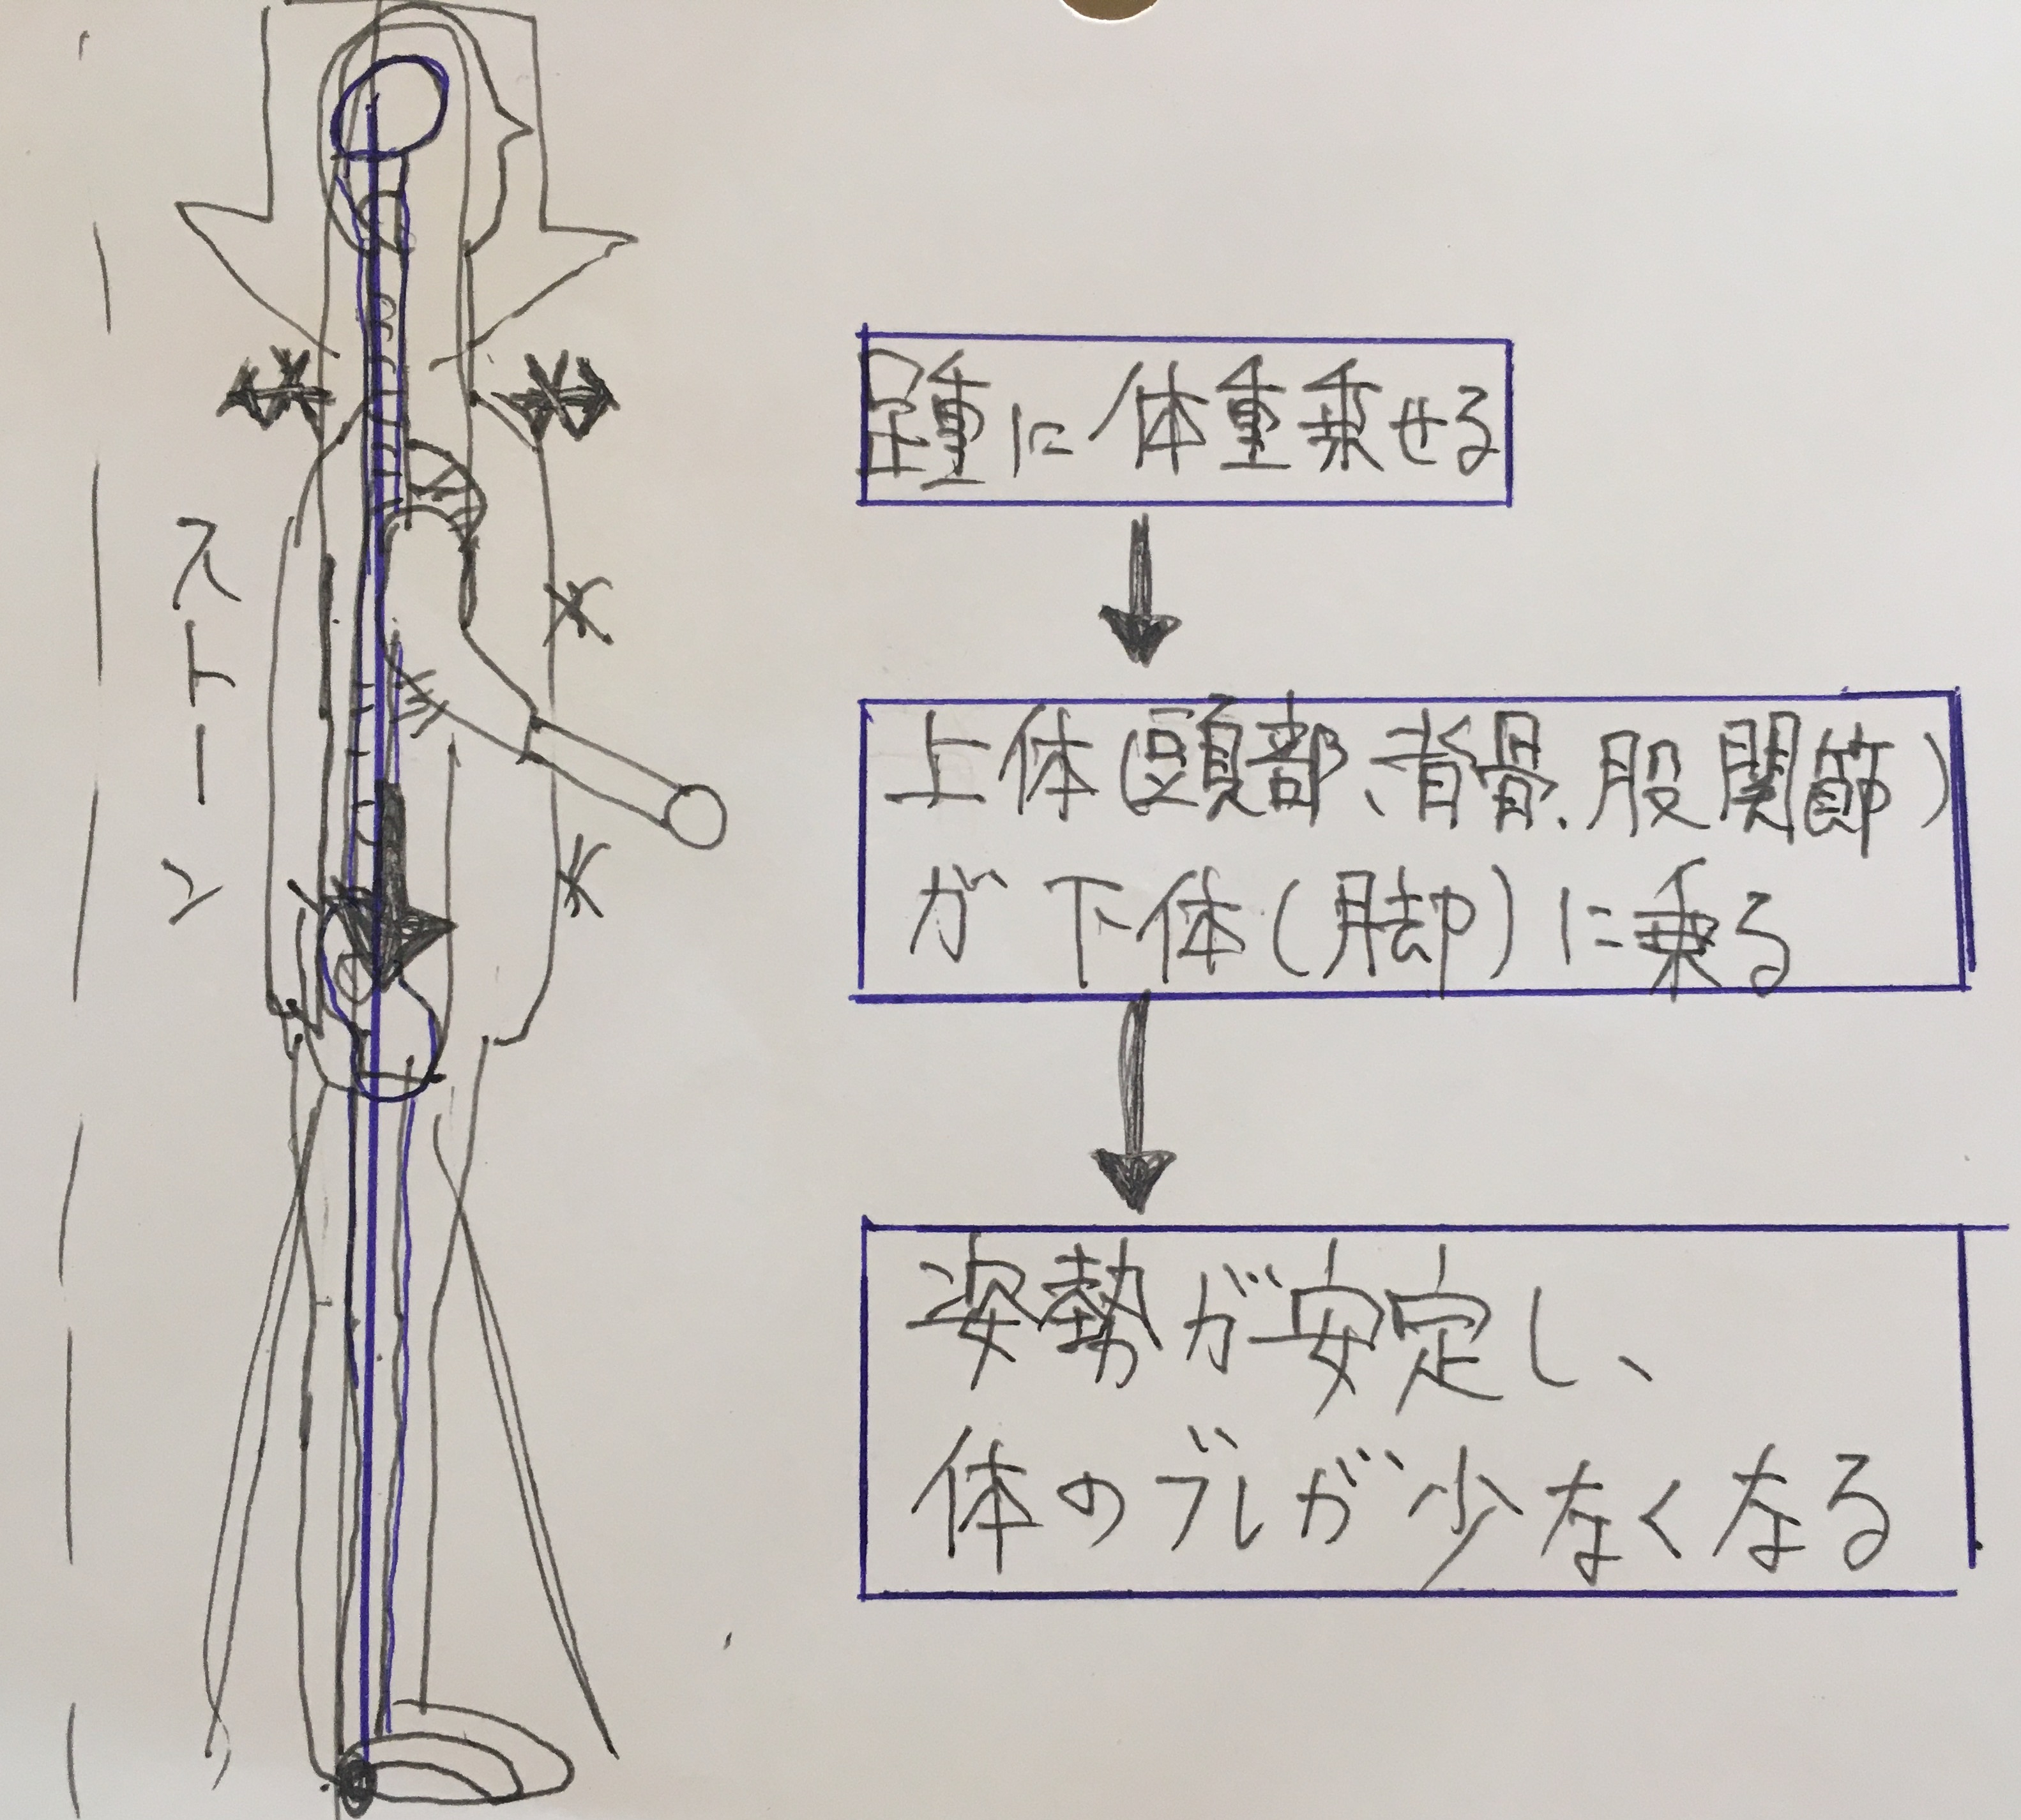 ストーン
踵に体重乗せる
上体(頭部、背骨、股関節)
が下体(脚)に乗る
姿勢が安定し、
体のブレが少なくなる